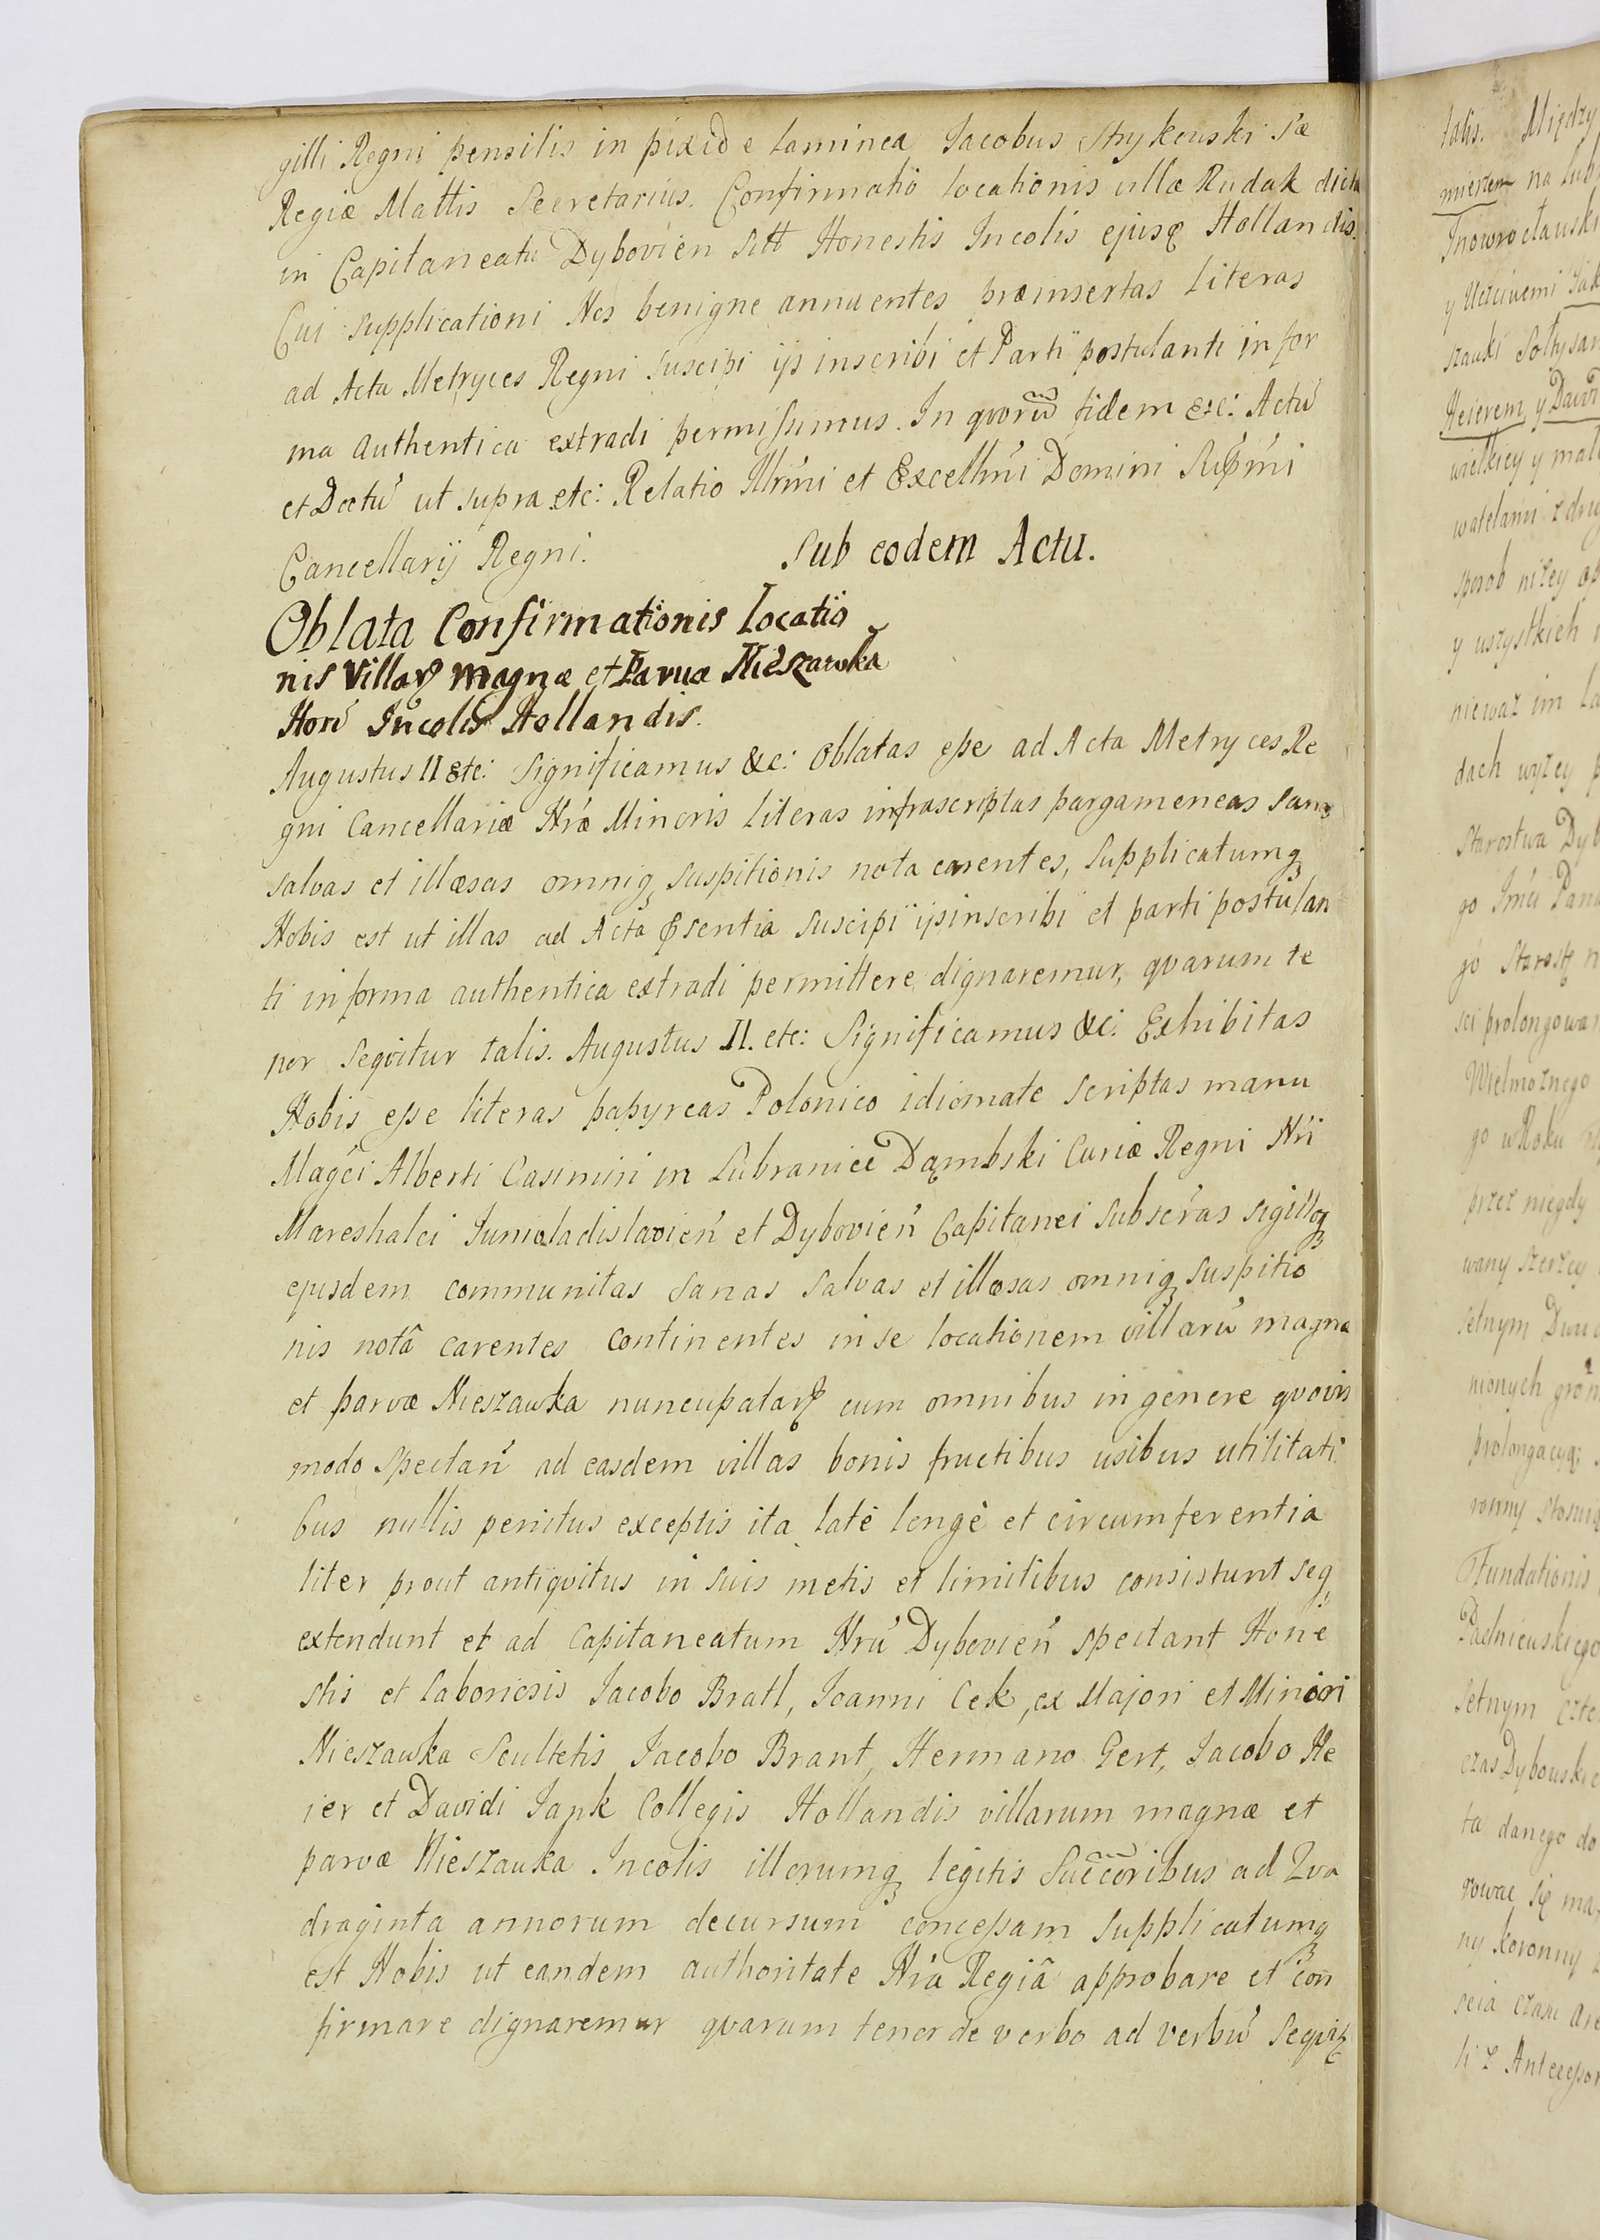 gilli Regni pensilis in pixide laminea Jacobus Strykowski Sæ
Regiæ Mattis Secretarius. Confirmatio locationis villæ Rudak dictæ
in Capitaneatu Dybovien Sitt Honestis Incolis ejusq Hollandis.
Cui supplicationi Nos benigne annuentes præinsertas Literas
ad Acta Metryces Regni suscipi ijs inscribi et Parti postulanti in for
ma authentica extradi permissimus. In qvorū fidem etc: Actū
et Dattū ut supra etc: Relatio Illrmi et Excellmi Domini Supmi
Cancellarij Regni.
Sub eodem Actu.
Oblata Confirmationis Locatio
nis Villarꝝ Magnæ et Parvæ Nieszawka
Horū Incolis Hollandis.
Augustus II etc: Significamus &c: Oblatas esse ad Acta Metryces Re
gni Cancellariæ Nræ Minoris Literas infrascriptas pargameneas sanas
salvas et illæsas omniq suspitionis nota carentes, supplicatumq
Nobis est ut illas ad Acta pñsentia suscipi ijs inscribi et parti postulan
ti in forma authentica extradi permittere dignaremur, qvarum te
nor seqvitur talis. Augustus II. etc: Significamus &c: Exhibitas
Nobis esse literas papyreas Polonico idiomate scriptas manu
Magci Alberti Casimiri in Lubraniec Dąmbski Curiæ Regni Nri
Mareshalci Juniuladislavien et Dybovien Capitanei subscras sigilloq
ejusdem communitas sanas salvas et illæsas omniq suspitio
nis notâ carentes continentes in se locationem villarū magnæ
et parvæ Nieszawka nuncupatarꝝ cum omnibus in genere qvovis
modo spectan ad easdem villas bonis fructibus usibus utilitati
bus nullis penitus exceptis ita latè longè et circumferentia
liter prout antiqvitus in suis metis et limitibus consistunt seq
extendunt et ad Capitaneatum Nrū Dybovien spectant Hone
stis et laboriosis Jacobo Bratl, Joanni Cek, ex Majori et Minori
Nieszawka Scultetis Jacobo Brant, Hermano Gert, Jacobo He
ier et Davidi Jank Collegis Hollandis villarum magnæ et
parvæ Nieszawka Incolis illorumq legitis Succoribus ad Qva
draginta annorum decursum concessam supplicatumq
est Nobis ut eandem authoritate Nra Regiâ approbare et con
firmare dignaremur qvarum tenor de verbo ad verbū seqvit
talis. Między
mierzem na Lub
Inowrocławski
y Uczciwemi Jak
szawki Sołtysam
Heierem, y Dawi
wielkiey y mał
watelami z dru
sposob niżey op
y wszystkich
nieważ im
dach wyżey
Starostwa Dyb
go Jmci Pana
go Starosty
sci prolongowa
Wielmożnego
go w Roku
przez niegdy
wany szerzey
setnym Dwu
nionych
prolongacyą
ronny
Fundationis
setnym czte
czas Dybowski
ta danego do
rować się ma
ny koronny